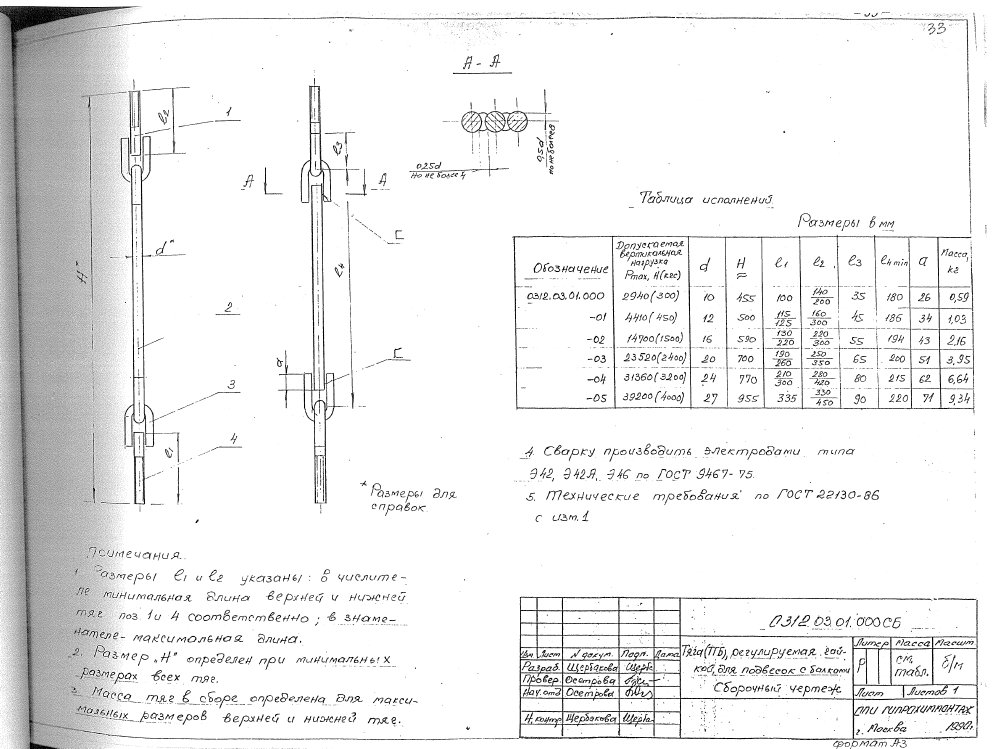 33
A - A
1
l2
l3
0,5d
но не более 3
0,25d
но не более 4
А
А
Н*
d*
l4
2
а
3
4
l1
* Размеры для
справок.
Таблица исполнений
Размеры в мм
Обозначение | Допускаемая вертикальная нагрузка Pmax, Н(кгс) | d | H ≈ | l1 | l2 | l3 | l4 min | a | Масса, кг
0312.03.01.000 | 2940(300) | 10 | 455 | 100 | 140/200 | 35 | 180 | 26 | 0,59
-01 | 4410(450) | 12 | 500 | 115/125 | 160/300 | 45 | 186 | 34 | 1,03
-02 | 14700(1500) | 16 | 590 | 130/220 | 220/300 | 55 | 194 | 43 | 2,16
-03 | 23520(2400) | 20 | 700 | 190/260 | 250/350 | 65 | 200 | 51 | 3,95
-04 | 31360(3200) | 24 | 770 | 210/300 | 280/420 | 80 | 215 | 62 | 6,64
-05 | 39200(4000) | 27 | 955 | 335 | 330/450 | 90 | 220 | 71 | 9,34
4. Сварку производить электродами типа
Э42, Э42А, Э46 по ГОСТ 9467-75.
5. Технические требования по ГОСТ 22130-86
с изм. 1
Примечания.
1. Размеры l1 и l2 указаны: в числите-
ле минимальная длина верхней и нижней
тяг поз. 1 и 4 соответственно; в знаме-
нателе - максимальная длина.
2. Размер „Н" определен при минимальных
размерах всех тяг.
3. Масса тяг в сборе определена для макси-
мальных размеров верхней и нижней тяг.
0312.03.01.000СБ
Изм. Лист N докум. Подп. Дата
Разраб. Щербакова Щерб
Провер. Осетрова
Нач. отд Осетрова
Н. контр Щербакова Щерб
Тяга (ПБ), регулируемая гай-
кой, для подвесок с балками
Сборочный чертеж
Литер Масса Масшт
Р см. табл. б/м
Лист Листов 1
СПИ ГИПРОХИММОНТАЖ
г. Москва 1990г.
Формат А3